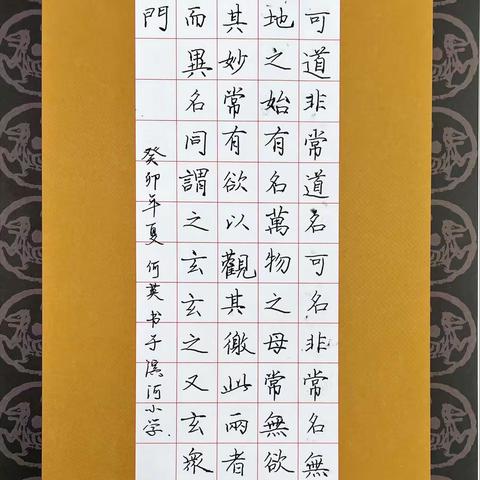 可道非常道名可名非常名無
地之始有名萬物之母常無欲
其妙常有欲以觀其徼此兩者
而異名同謂之玄玄之又玄衆
門
癸卯年夏 何英书于滨河小学.